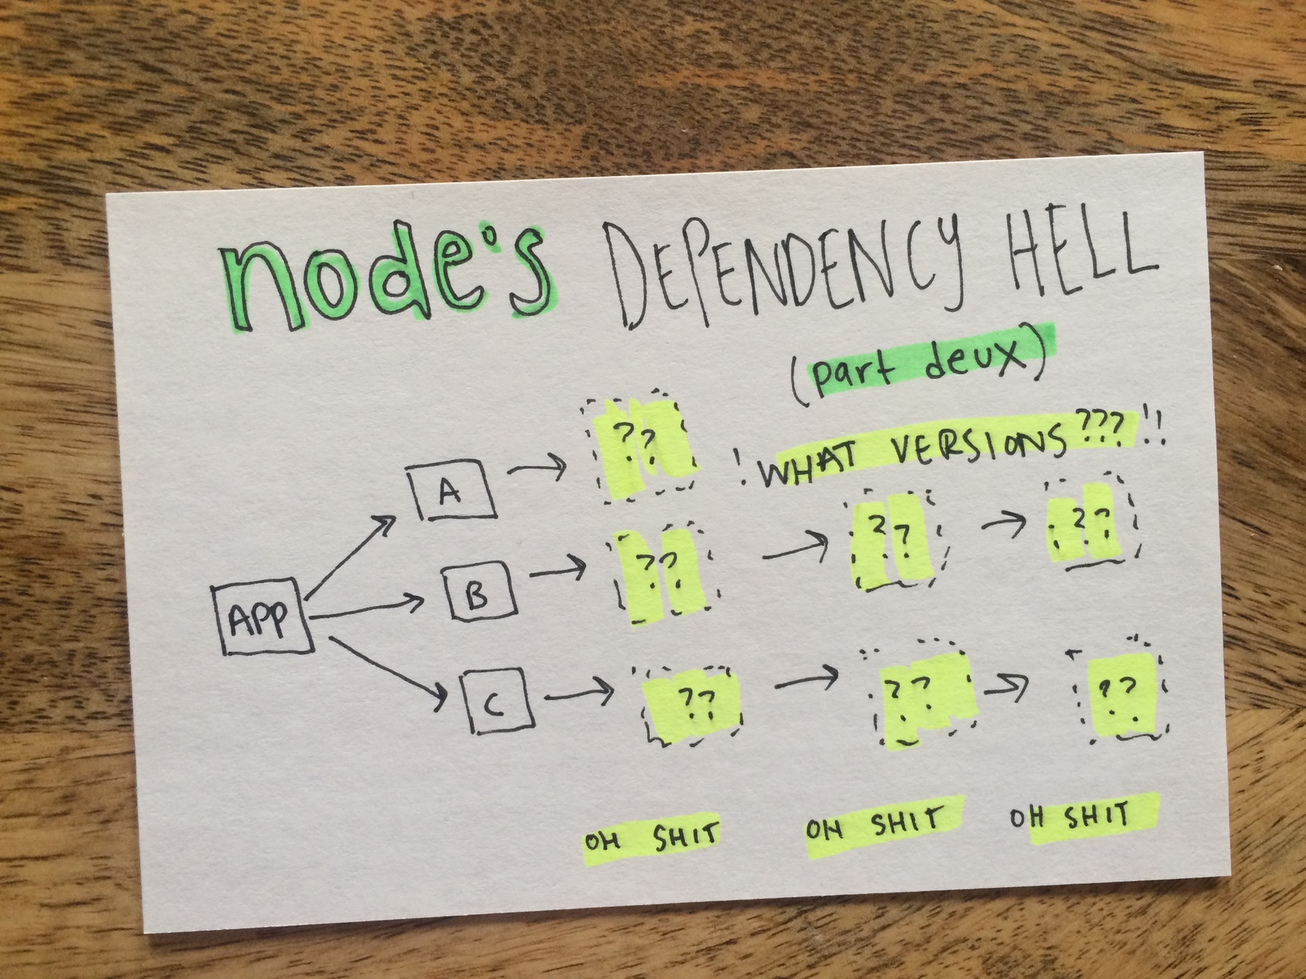 node's DEPENDENCY HELL
(part deux)
! WHAT VERSIONS ??? !!
??
A
?? ?? ??
B
APP
?? ?? ??
C
OH SHIT OH SHIT OH SHIT